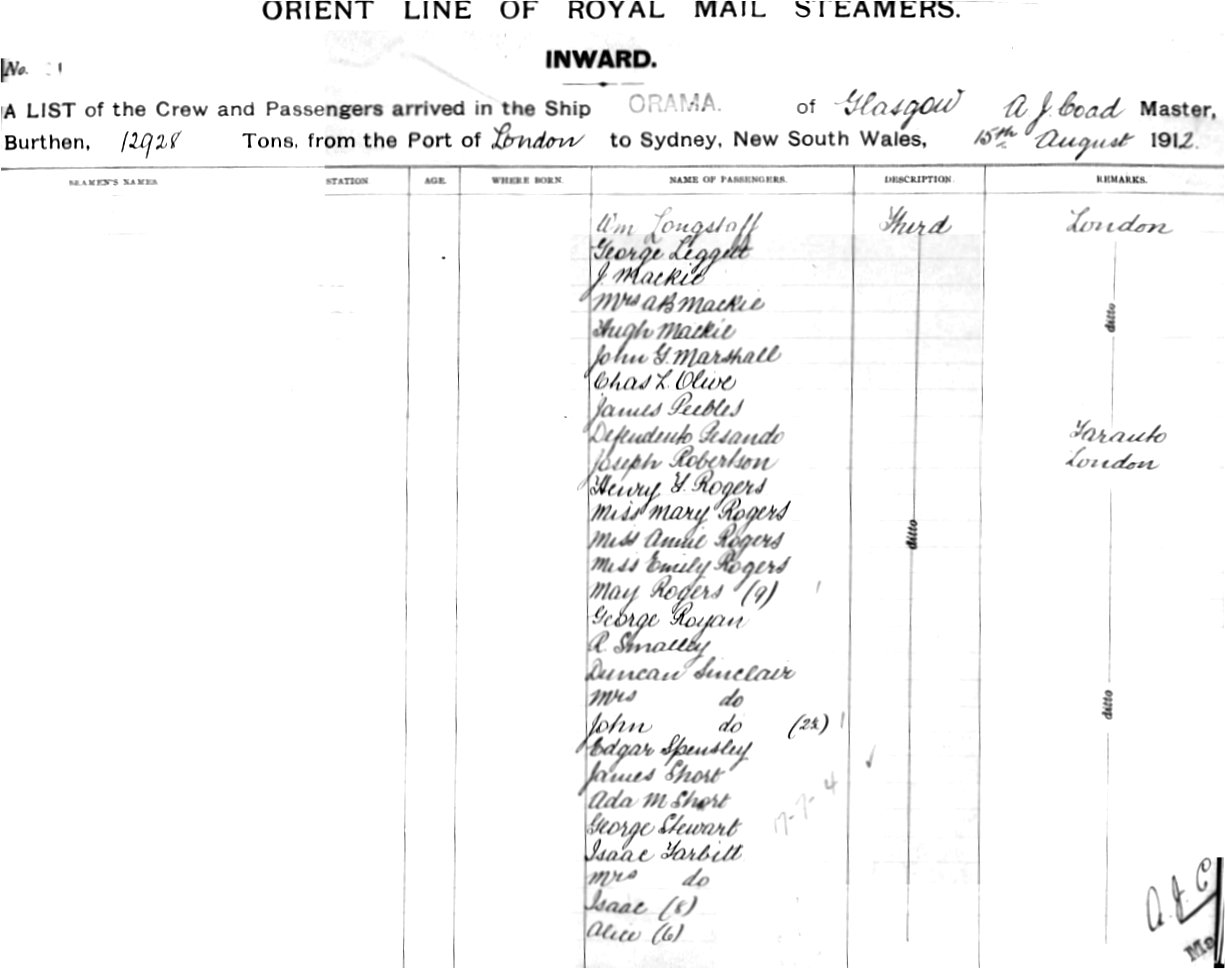 ORIENT LINE OF ROYAL MAIL STEAMERS.
INWARD.
No.
A LIST of the Crew and Passengers arrived in the Ship ORAMA. of Glasgow A J Coad Master,
Burthen, 12928 Tons, from the Port of London to Sydney, New South Wales, 15th August 1912.
SEAMEN'S NAMES STATION AGE. WHERE BORN. NAME OF PASSENGERS. DESCRIPTION. REMARKS.
Wm Longstaff Third London
George Leggett
J. Mackie
Mrs A B Mackie ditto
Hugh Mackie
John G. Marshall
Chas L. Olive
James Peebles
Defendento Pesando Taranto
Joseph Robertson London
Henry G. Rogers
Miss Mary Rogers
Miss Annie Rogers ditto
Miss Emily Rogers
May Rogers (9)
George Royan
R. Smalley
Duncan Sinclair
Mrs do ditto
John do
Edgar Spensley
James Short
Ada M Short
George Stewart
Isaac Tarbitt
Mrs do
Isaac (8)
Alice (6)
A. J. C
Ma